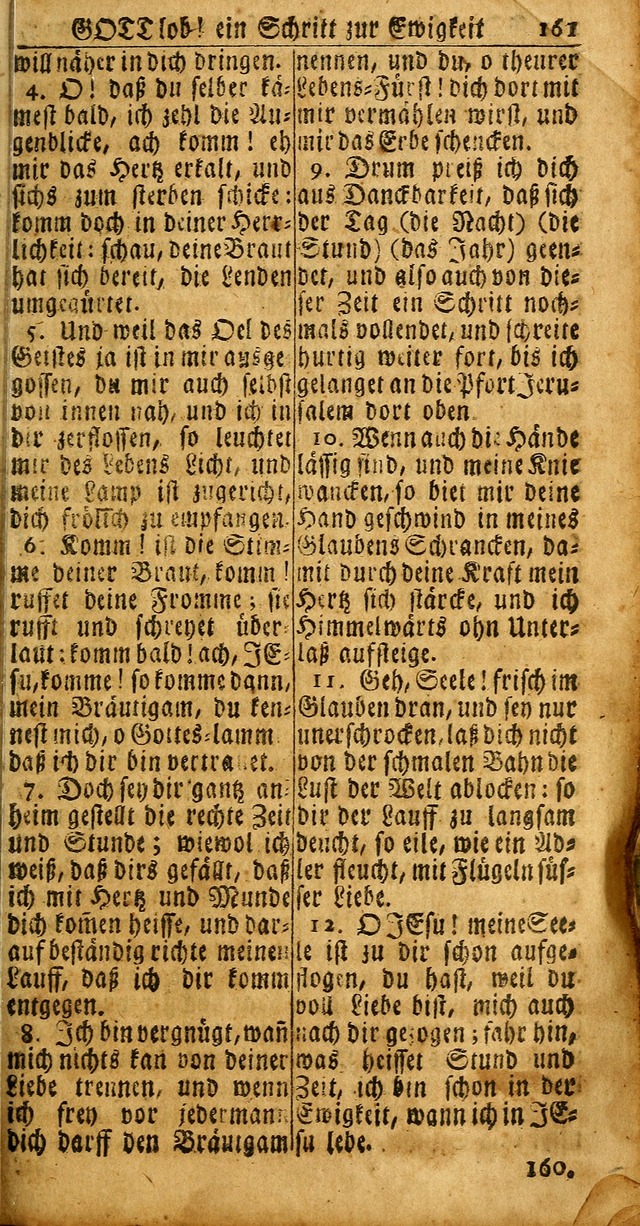 GOTT lob! ein Schritt zur Ewigkeit 161
will näher in dich dringen.
4. O! daß du selber kä-
mest bald, ich zehl die Au-
genblicke, ach komm! eh
mir das Hertz erkalt, und
sichs zum sterben schicke:
komm doch in deiner Herr-
lichkeit: schau, deine Braut
hat sich bereit, die Lenden
umgegürtet.
5. Und weil das Oel des
Geistes ja ist in mir ausge
gossen, du mir auch selbst
von innen nah, und ich in
dir zerflossen, so leuchtet
mir des Lebens Licht, und
meine Lamp ist zugericht,
dich frölich zu empfangen.
6. Komm! ist die Stim-
me deiner Braut, komm!
ruffet deine Fromme; sie
rufft und schreyet über-
laut: komm bald! ach, JE-
su, komme! so komme dann,
mein Bräutigam, du ken-
nest mich, o Gottes-lamm
daß ich dir bin vertrauet.
7. Doch sey dir gantz an-
heim gestellt die rechte Zeit
und Stunde; wiewol ich
weiß, daß dirs gefällt, daß
ich mit Hertz und Munde
dich kom̄en heisse, und dar-
auf beständig richte meinen
Lauff, daß ich dir komm
entgegen.
8. Ich bin vergnügt, wan̄
mich nichts kan von deiner
Liebe trennen, und wenn
ich frey vor jederman
dich darff den Bräutgam
nennen, und du, o theurer
Lebens-Fürst! dich dort mit
mir vermählen wirst, und
mir das Erbe schencken.
9. Drum preiß ich dich
aus Danckbarkeit, daß sich
der Tag (die Nacht) (die
Stund) (das Jahr) geen-
det, und also auch von die-
ser Zeit ein Schritt noch-
mals vollendet, und schreite
hurtig weiter fort, bis ich
gelanget an die Pfort Jeru-
salem dort oben.
10. Wenn auch die Hände
lässig sind, und meine Knie
wancken, so biet mir deine
Hand geschwind in meines
Glaubens Schrancken, da-
mit durch deine Kraft mein
Hertz sich stärcke, und ich
Himmelwärts ohn Unter-
laß aufsteige.
11. Geh, Seele! frisch im
Glauben dran, und sey nur
unerschrocken, laß dich nicht
von der schmalen Bahn die
Lust der Welt ablocken: so
dir der Lauff zu langsam
deucht, so eile, wie ein Ad-
ler fleucht, mit Flügeln süs-
ser Liebe.
12. O JEsu! meine See-
le ist zu dir schon aufge-
flogen, du hast, weil du
voll Liebe bist, mich auch
nach dir gezogen; fahr hin,
was heisset Stund und
Zeit, ich bin schon in der
Ewigkeit, wann ich in JE-
su lebe.
160.